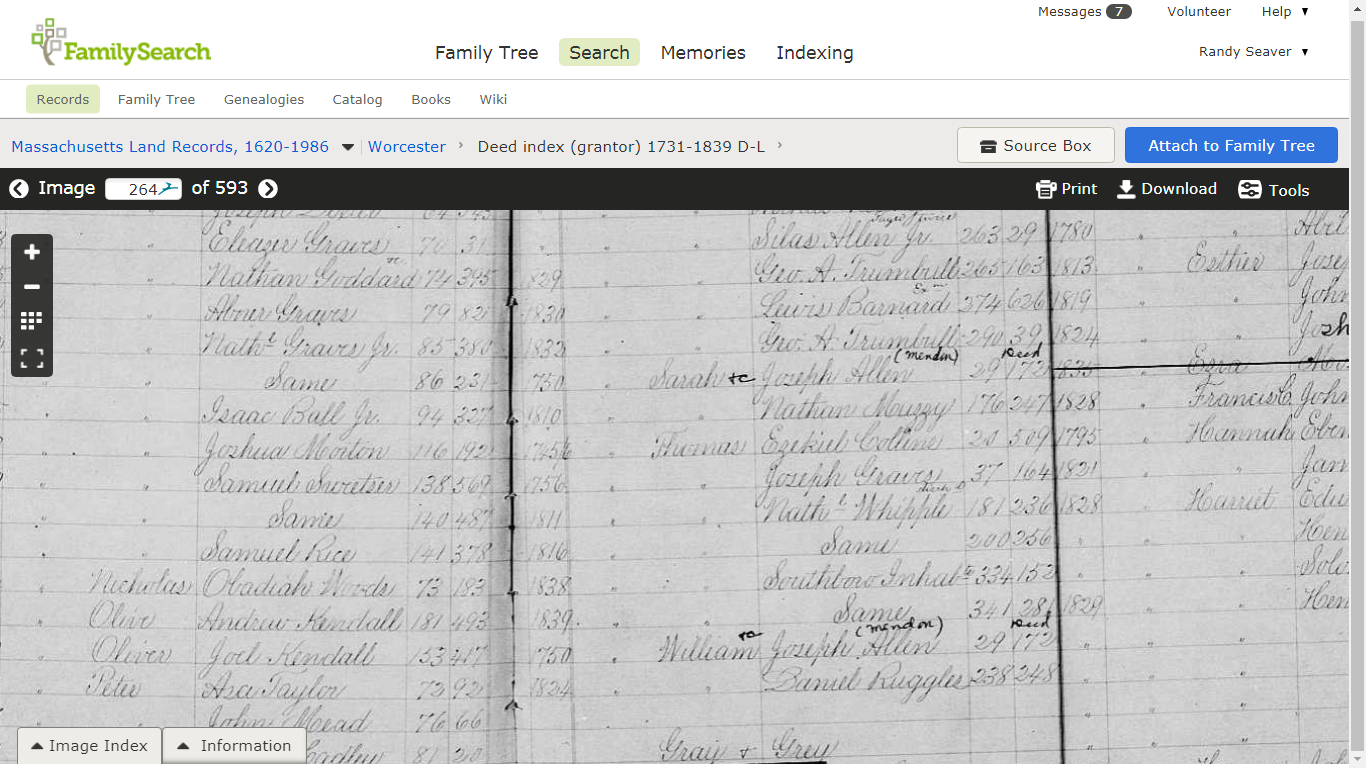 Messages 7 Volunteer Help ▼
FamilySearch
Family Tree Search Memories Indexing
Randy Seaver ▼
Records Family Tree Genealogies Catalog Books Wiki
Massachusetts Land Records, 1620-1986 Worcester › Deed index (grantor) 1731-1839 D-L ›
Source Box Attach to Family Tree
Image 264 of 593 Print Download Tools
Eleazer Graves 70 31
Nathan Goddard 74 395
Abner Graves 79 82
Nathl Graves Jr. 85 380
Same 86 231
Isaac Ball Jr. 94 327
Joshua Morton 116 192
Samuel Sweetser 138 569
Same 140 487
Samuel Rice 141 378
Nicholas Obadiah Woods 73 183
Olive Andrew Kendall 181 493
Oliver Joel Kendall 153 417
Peter Asa Taylor 72 92
John Mead 76 66
Silas Allen Jr. 263 29
1829 Geo. A. Trumbull 265 163
1830 Lewis Barnard 274 626
1832 Geo. A. Trumbull 290 39
(Mendon) Deed
1750 Sarah +c Joseph Allen 29 172
1810 Nathan Muzzy 176 247
Thomas Ezekiel Collins 20 509
1756 Joseph Graves 37 164
1811 Nathl Whipple 181 236
1816 Same 200 256
1838 Southboro Inhabts 334 152
1839 Same 341 281
(Mendon) Deed
1750 William +c Joseph Allen 29 172
1824 Daniel Ruggles 238 248
Gray + Grey
1780 Abel
1813 Esther Jose
1819 John
1824 Josh
1835 Ezra
1828 Francis C. John
1795 Hannah Eben
1821 Jam
1828 Harriet Edw
Hen
Solo
1829 Hen
Image Index Information